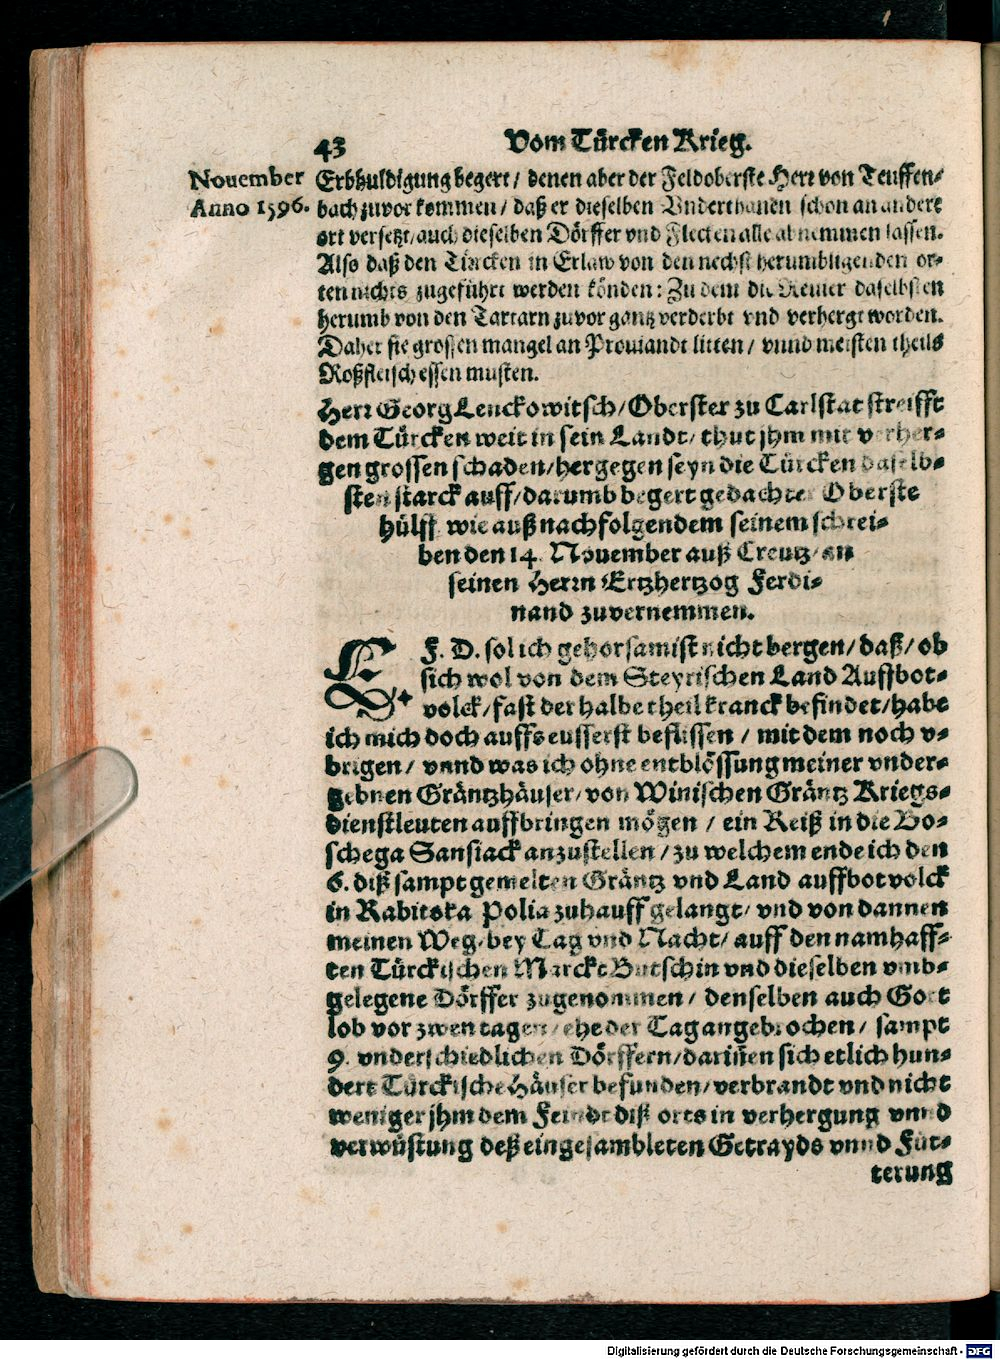 43 Vom Türcken Krieg.
November
Anno 1596.
Erbhuldigung begert / denen aber der Feldoberste Herr von Teuffen-
bach zuvor kommen / daß er dieselben Vnderthanen schon an andere
ort versetzt / auch dieselben Dörffer vnd Flecken alle abnemmen lassen.
Also daß den Türcken in Erlaw von den nechst herumbligenden or-
ten nichts zugeführt werden könden: Zu dem die Reuier daselbsten
herumb von den Tartarn zuvor gantz verderbt vnd verhergt worden.
Daher sie grossen mangel an Prouiandt litten / vnnd meisten theils
Roßfleisch essen musten.
Herr Georg Lenckowitsch / Oberster zu Carlstat streifft
dem Türcken weit in sein Landt / thut jhm mit verher-
gen grossen schaden / hergegen seyn die Türcken daselb-
sten starck auff / darumb begert gedachter Oberste
hülff wie auß nachfolgendem seinem schrei-
ben den 14. November auß Creutz / an
seinen Herrn Ertzhertzog Ferdi-
nand zuvernemmen.
E. F. D. sol ich gehorsamist nicht bergen / daß / ob
sich wol von dem Steyrischen Land Auffbot-
volck / fast der halbe theil kranck befindet / habe
ich mich doch auffs eusserst beflissen / mit dem noch v-
brigen / vnnd was ich ohne entblössung meiner vnder-
gebnen Gräntzhäuser / von Winischen Gräntz Kriegs-
dienstleuten auffbringen mögen / ein Reiß in die Bo-
schega Sansiack anzustellen / zu welchem ende ich den
6. diß sampt gemelten Gräntz vnd Land auffbotvolck
in Rabitska Polia zuhauff gelangt / vnd von dannen
meinen Weg / bey Tag vnd Nacht / auff den namhaff-
ten Türckischen Marckt Butschin vnd dieselben vmb-
gelegene Dörffer zugenommen / denselben auch Gott
lob vor zwen tagen / ehe der Tag angebrochen / sampt
9. vnderschiedlichen Dörffern / darinen sich etlich hun-
dert Türckische Häuser befunden / verbrandt vnd nicht
weniger jhm dem Feindt diß orts in verhergung vnnd
verwüstung deß eingesambleten Getrayds vnnd Füt-
terung
Digitalisierung gefördert durch die Deutsche Forschungsgemeinschaft - DFG